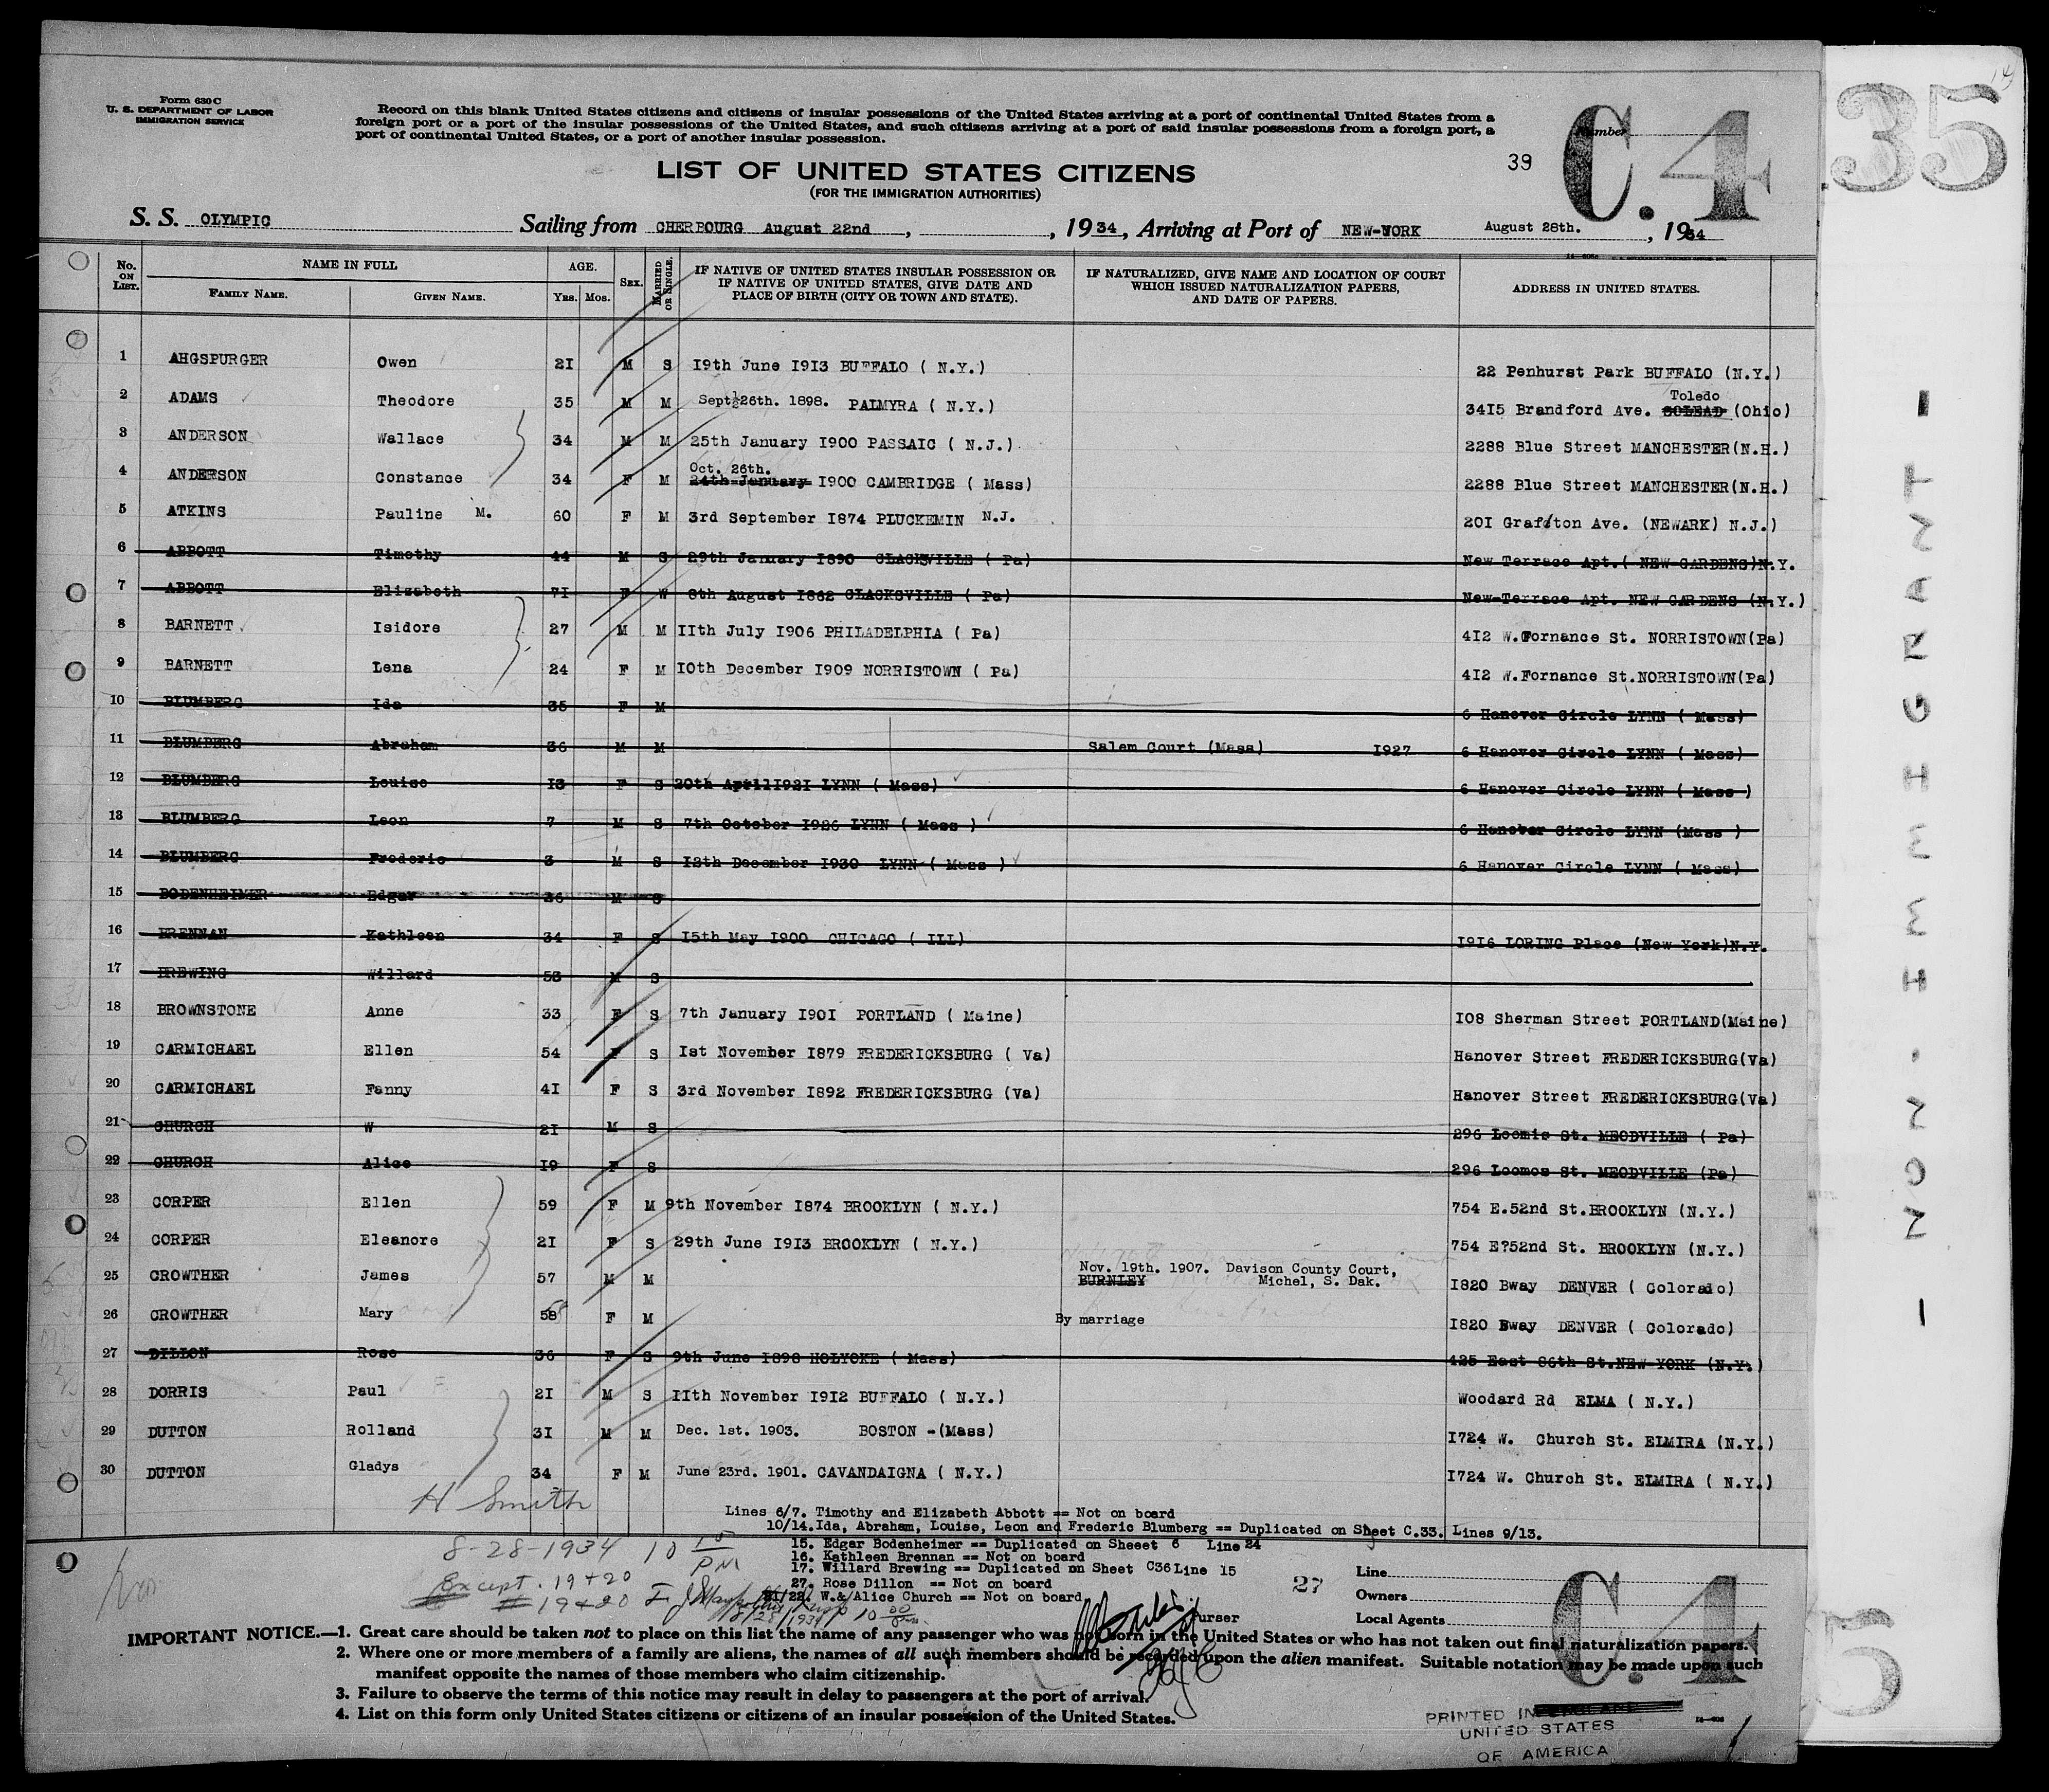 Form 630 C
U. S. DEPARTMENT OF LABOR
IMMIGRATION SERVICE
Record on this blank United States citizens and citizens of insular possessions of the United States arriving at a port of continental United States from a
foreign port or a port of the insular possessions of the United States, and such citizens arriving at a port of said insular possessions from a foreign port, a
port of continental United States, or a port of another insular possession.
Number
C.4
35
39
LIST OF UNITED STATES CITIZENS
(FOR THE IMMIGRATION AUTHORITIES)
S. S. OLYMPIC Sailing from CHERBOURG August 22nd , , 1934, Arriving at Port of NEW-YORK August 28th. , 1934
No. ON LIST. NAME IN FULL AGE. SEX. MARRIED OR SINGLE. IF NATIVE OF UNITED STATES INSULAR POSSESSION OR IF NATIVE OF UNITED STATES, GIVE DATE AND PLACE OF BIRTH (CITY OR TOWN AND STATE). IF NATURALIZED, GIVE NAME AND LOCATION OF COURT WHICH ISSUED NATURALIZATION PAPERS, AND DATE OF PAPERS. ADDRESS IN UNITED STATES.
FAMILY NAME. GIVEN NAME. YRS. MOS.
1 AHGSPURGER Owen 2I M S I9th June I9I3 BUFFALO ( N.Y.) 22 Penhurst Park BUFFALO (N.Y.)
2 ADAMS Theodore 35 M M Sept 26th. 1898. PALMYRA ( N.Y.) 34I5 Brandford Ave. Toledo (Ohio)
3 ANDERSON Wallace 34 M M 25th January I900 PASSAIC ( N.J.) 2288 Blue Street MANCHESTER(N.H.)
4 ANDERSON Constance 34 F M Oct. 26th. 24th January I900 CAMBRIDGE ( Mass) 2288 Blue Street MANCHESTER(N.H.)
5 ATKINS Pauline M. 60 F M 3rd September I874 PLUCKEMIN N.J. 20I Grafton Ave. (NEWARK) N.J.)
6 ABBOTT Timothy 44 M S 29th January I890 CLACKVILLE ( Pa) New Terrace Apt.( NEW-GARDENS)N.Y.
7 ABBOTT Elizabeth 7I F W 8th August I862 CLACKSVILLE ( Pa) New-Terrace Apt. NEW GARDENS (N.Y.)
8 BARNETT Isidore 27 M M IIth July I906 PHILADELPHIA ( Pa) 4I2 W.Fornance St. NORRISTOWN(Pa)
9 BARNETT Lena 24 F M I0th December I909 NORRISTOWN ( Pa) 4I2 W.Fornance St.NORRISTOWN(Pa)
10 BLUMBERG Ida 35 F M 6 Hanover Circle LYNN ( Mass)
11 BLUMBERG Abraham 36 M M Salem Court (Mass) I927 6 Hanover Circle LYNN ( Mass)
12 BLUMBERG Louise I3 F S 20th AprilI92I LYNN ( Mass) 6 Hanover Circle LYNN ( Mass )
13 BLUMBERG Leon 7 M S 7th October I926 LYNN ( Mass ) 6 Hanover Circle LYNN (Mass )
14 BLUMBERG Frederic 3 M S I2th December I930 LYNN ( Mass ) 6 Hanover Circle LYNN ( Mass)
15 BODENHEIMER Edgar 36 M S
16 BRENNAN Kathleen 34 F S I5th May I900 CHICAGO ( ILL) I9I6 LORING Place (New York)N.Y.
17 BREWING Willard 53 M S
18 BROWNSTONE Anne 33 F S 7th January I90I PORTLAND ( Maine) I08 Sherman Street PORTLAND(Maine)
19 CARMICHAEL Ellen 54 F S Ist November I879 FREDERICKSBURG ( Va) Hanover Street FREDERICKSBURG(Va)
20 CARMICHAEL Fanny 4I F S 3rd November I892 FREDERICKSBURG (Va) Hanover Street FREDERICKSBURG(Va)
21 CHURCH W 2I M S 296 Loomis St. MEODVILLE ( Pa)
22 CHURCH Alice I9 F S 296 Loomos St. MEODVILLE (Pa)
23 CORPER Ellen 59 F M 9th November I874 BROOKLYN ( N.Y.) 754 E.52nd St.BROOKLYN (N.Y.)
24 CORPER Eleanore 2I F S 29th June I9I3 BROOKLYN ( N.Y.) 754 E?52nd St. BROOKLYN (N.Y.)
25 CROWTHER James 57 M M Nov. 19th. 1907. Davison County Court, BURNLEY Michel, S. Dak. I820 Bway DENVER ( Colorado)
26 CROWTHER Mary 58 F M By marriage I820 Bway DENVER ( Colorado)
27 DILLON Rose 36 F S 9th June I898 HOLYOKE ( Mass) 425 East 86th St.NEW-YORK (N.Y.)
28 DORRIS Paul 2I M S IIth November I9I2 BUFFALO ( N.Y.) Woodard Rd ELMA ( N.Y.)
29 DUTTON Rolland 3I M M Dec. 1st. 1903. BOSTON -(Mass) I724 W. Church St. ELMIRA (N.Y.)
30 DUTTON Gladys 34 F M June 23rd. 1901. CAVANDAIGNA ( N.Y.) I724 W. Church St. ELMIRA ( N.Y.)
H Smith
Lines 6/7. Timothy and Elizabeth Abbott == Not on board
10/14.Ida, Abraham, Louise, Leon and Frederic Blumberg == Duplicated on Sheet C.33. Lines 9/13.
15. Edgar Bodenheimer == Duplicated on Sheeet 6 Line 24
16. Kathleen Brennan == Not on board
17. Willard Brewing == Duplicated on Sheet C36 Line 15
27. Rose Dillon == Not on board
21/22. W.& Alice Church == Not on board
8-28-1934 10 15 PM
Except. 19+20
19+20
8/28/1934 10 00
27
Purser
Line
Owners
Local Agents
C.4
5
IMPORTANT NOTICE.—1. Great care should be taken not to place on this list the name of any passenger who was not born in the United States or who has not taken out final naturalization papers.
2. Where one or more members of a family are aliens, the names of all such members should be recorded upon the alien manifest. Suitable notation may be made upon such
manifest opposite the names of those members who claim citizenship.
3. Failure to observe the terms of this notice may result in delay to passengers at the port of arrival.
4. List on this form only United States citizens or citizens of an insular possession of the United States.
PRINTED IN
UNITED STATES
OF AMERICA
NON-IMMIGRANT